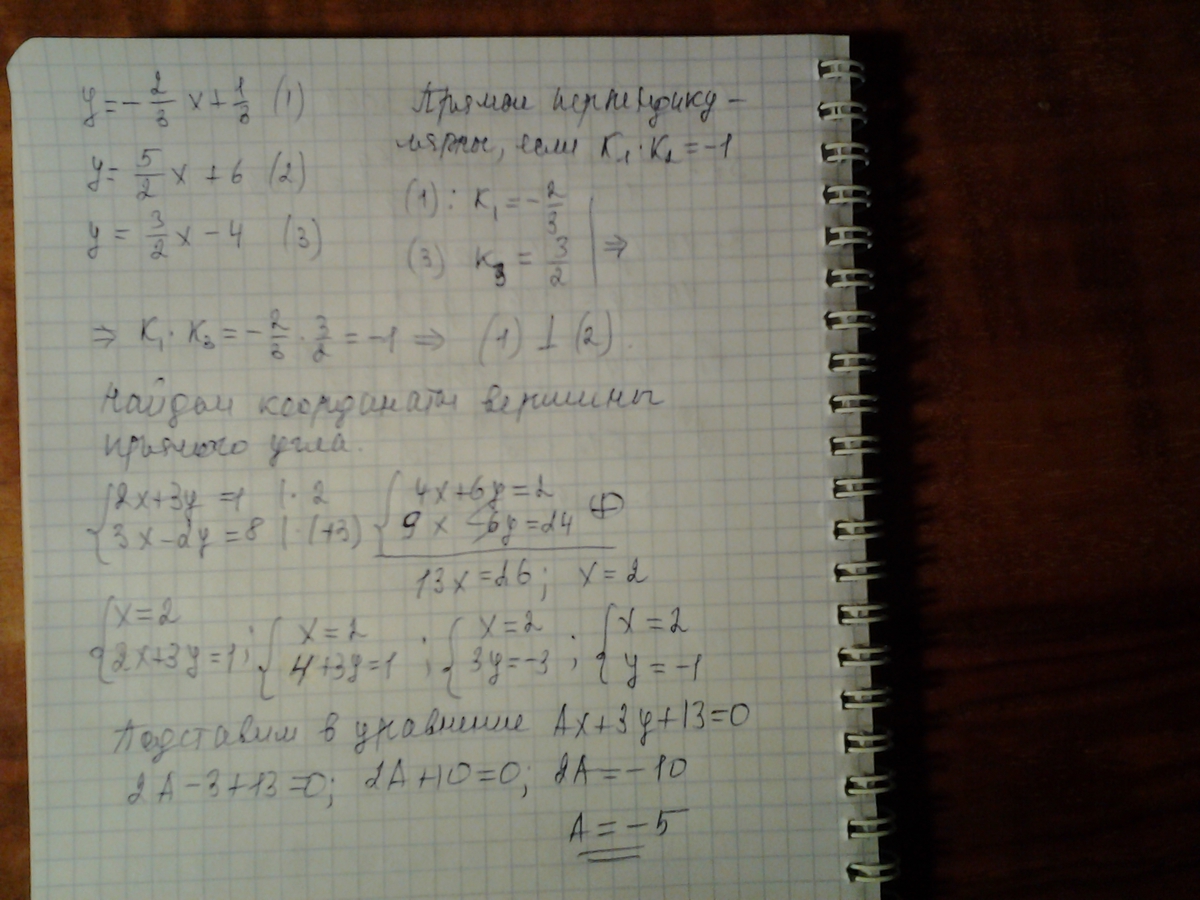 y = -2/3 x + 1/3 (1)
y = 5/2 x + 6 (2)
y = 3/2 x - 4 (3)
Прямые перпендику-
лярны, если K₁·K₂ = -1
(1): K₁ = -2/3
(3) K₃ = 3/2 | ⇒
⇒ K₁·K₃ = -2/3 · 3/2 = -1 ⇒ (1) ⊥ (2).
Найдем координаты вершины
прямого угла.
{2x+3y=1 |·2 {4x+6y=2
{3x-2y=8 |·(+3) {9x-6y=24 ⊕
13x=26; x=2
{x=2 {x=2 {x=2 {x=2
{2x+3y=1; {4+3y=1; {3y=-3; {y=-1
Подставим в уравнение Ax+3y+13=0
2A-3+13=0; 2A+10=0; 2A=-10
A=-5